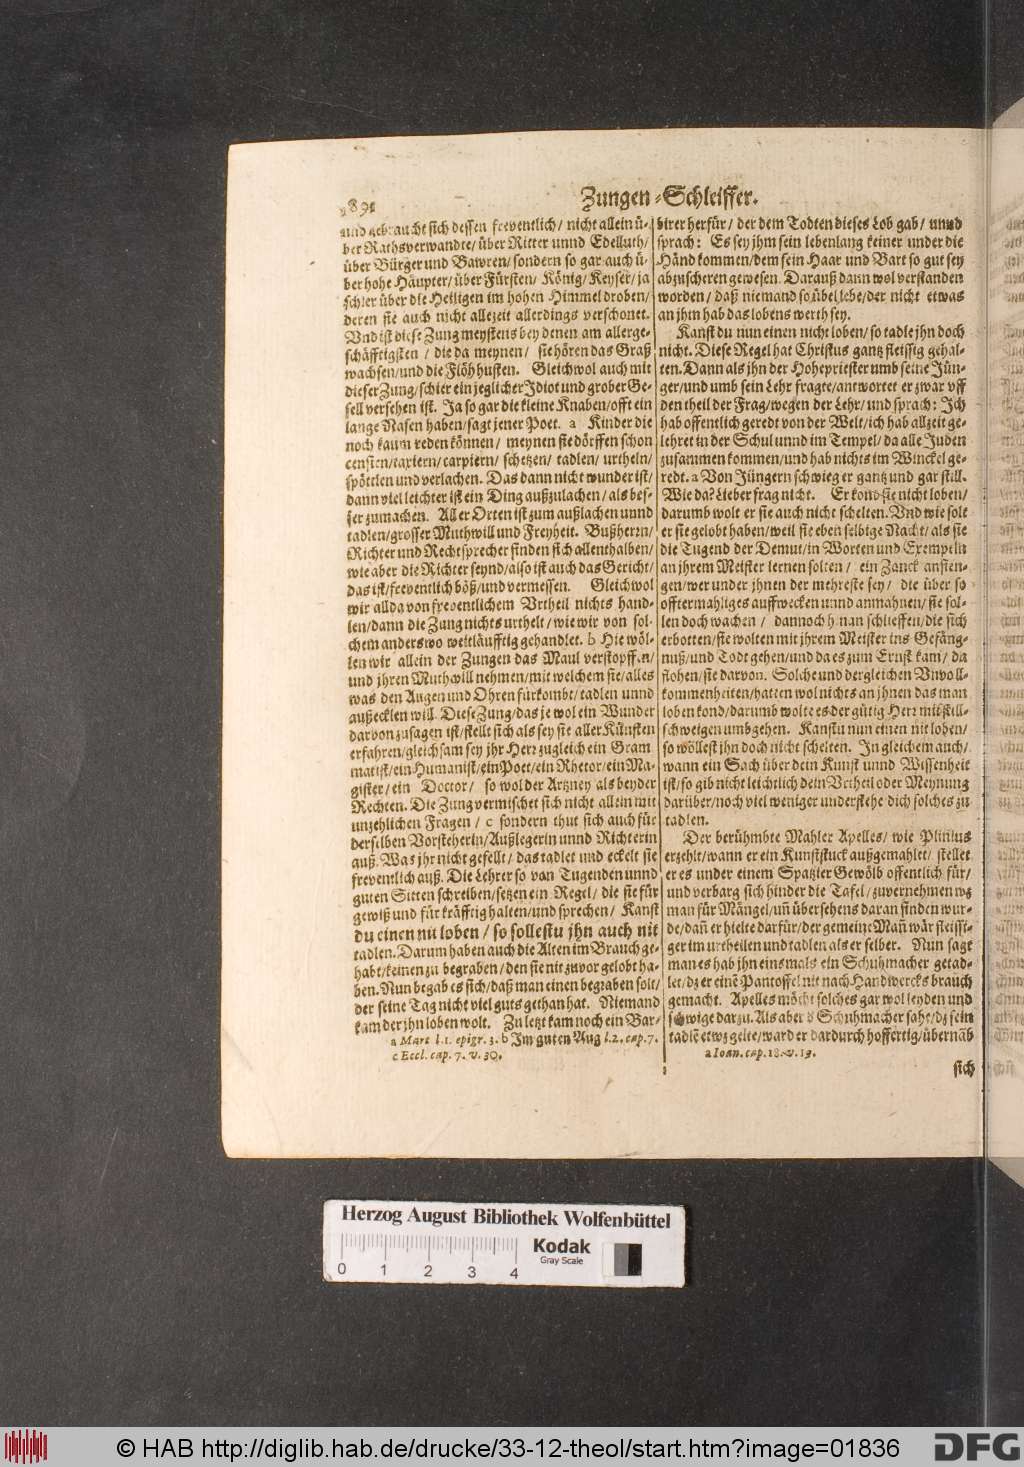 Zungen-Schleiffer.
und gebraucht sich dessen freventlich/ nicht allein ü-
ber Rathsverwandte/ über Ritter unnd Edelleuth/
über Bürger und Bawren/ sondern so gar auch ü-
ber hohe Häupter/ über Fürsten/ König/ Keyser/ ja
schier über die Heiligen im hohen Himmel droben/
deren sie auch nicht allezeit allerdings verschonet.
Vnd ist diese Zung meystens bey denen am allerge-
schäfftigsten / die da meynen/ sie hören das Graß
wachsen/ und die Flöh husten. Gleichwol auch mit
dieser Zung/ schier ein jeglicher Idiot und grober Ge-
sell versehen ist. Ja so gar die kleine Knaben/ offt ein
lange Nasen haben/ sagt jener Poet. a Kinder die
noch kaum reden können / meynen sie dörffen schon
censirn/ taxiern/ carpiern/ schetzen/ tadlen/ urtheln/
spöttlen und verlachen. Das dann nicht wunder ist/
dann viel leichter ist ein Ding außzulachen / als bes-
ser zumachen. Aller Orten ist zum außlachen unnd
tadlen/ grosser Muthwill und Freyheit. Bußherrn/
Richter und Rechtsprecher finden sich allenthalben/
wie aber die Richter seynd/ also ist auch das Gericht/
das ist/ freventlich böß/ und vermessen. Gleichwol
wir allda von freventlichem Vrtheil nichts hand-
len/ dann die Zung nichts urthelt/ wie wir von sol-
chem anderswo weitläufftig gehandlet. b Hie wöl-
len wir allein der Zungen das Maul verstopffen/
und jhren Muthwill nehmen/ mit welchem sie/ alles
was den Augen und Ohren fürkombt/ tadlen unnd
außecklen will. Diese Zung/ das je wol ein Wunder
darvon zusagen ist/ stellt sich als sey sie aller Künsten
erfahren/ gleichsam sey jhr Herr zugleich ein Gram
matist/ ein Humanist/ ein Poet/ ein Rhetor/ ein Ma-
gister/ ein Doctor/ so wol der Artzney als beyder
Rechten. Die Zung vermischet sich nicht allein mit
unzehlichen Fragen / c sondern thut sich auch für
derselben Vorsteherin/ Außlegerin unnd Richterin
auß. Was jhr nicht gefellt/ das tadlet und eckelt sie
freventlich auß. Die Lehrer so von Tugenden unnd
guten Sitten schreiben/ setzen ein Regel/ die sie für
gewiß und für kräfftig halten/ und sprechen/ Kanst
du einen nit loben/ so sollestu jhn auch nit
tadlen. Darum haben auch die Alten im Brauch ge-
habt/ keinen zu begraben/ den sie nit zuvor gelobt ha-
ben. Nun begab es sich/ daß man einen begraben solt/
der seine Tag nicht viel guts gethan hat. Niemand
kam der jhn loben wolt. Zu letzt kam noch ein Bar-
a Mart l.1. epigr. 3. b Im guten Aug l.2. cap.7.
c Eccl. cap. 7. v. 30.
birer herfür/ der dem Todten dieses Lob gab/ unnd
sprach: Es sey jhm sein lebenlang keiner under die
Händ kommen/ dem sein Haar und Bart so gut sey
abzuscheren gewesen. Darauß dann wol verstanden
worden/ daß niemand so übel lebe/ der nicht etwas
an jhm hab das lobens werth sey.
Kanst du nun einen nicht loben/ so tadle jhn doch
nicht. Diese Regel hat Christus gantz fleissig gehal-
ten. Dann als jhn der Hohepriester umb seine Jün-
ger/ und umb sein Lehr fragte/ antwortet er zwar uff
den theil der Frag/ wegen der Lehr/ und sprach: Ich
hab offentlich geredt von der Welt/ ich hab allzeit ge-
lehret in der Schul unnd im Tempel/ da alle Juden
zusammen kommen/ und hab nichts im Winckel ge-
redt. a Von Jüngern schwieg er gantz und gar still.
Wie da? Lieber frag nicht. Er kondte sie nicht loben/
darumb wolt er sie auch nicht schelten. Vnd wie solt
er sie gelobt haben/ weil sie eben selbige Nacht/ als sie
die Tugend der Demut/ in Worten und Exempeln
an jhrem Meister lernen solten/ ein Zanck anfien-
gen/ wer under jhnen der mehreste sey/ die über so
offtermahliges auffwecken unnd anmahnen/ sie sol-
len doch wachen / dannoch hinan schlieffen/ die sich
erbotten/ sie wolten mit jhrem Meister ins Gefäng-
nuß/ und Todt gehen/ und da es zum Ernst kam/ da
flohen/ sie darvon. Solche und dergleichen Vnvoll-
kommenheiten/ hatten wol nichts an jhnen das man
loben kond/ darumb wolte es der gütig Herr mit still-
schweigen umbgehen. Kanstu nun einen nit loben/
so wöllest jhn doch nicht schelten. In gleichem auch/
wann ein Sach über dein Kunst unnd Wissenheit
ist/ so gib nicht leichtlich dein Vrtheil oder Meynung
darüber/ noch viel weniger understehe dich solches zu
tadlen.
Der berühmbte Mahler Apelles/ wie Plinius
erzehlt/ wann er ein Kunststuck außgemahlet/ stellet
er es under einem Spatzier Gewölb offentlich für/
und verbarg sich hinder die Tafel/ zuvernehmen wz
man für Mängel/ uñ übersehens daran finden wur-
de/ dañ er hielte darfür/ der gemeine Mañ wär fleissi-
ger im urtheilen und tadlen als er selber. Nun sagt
man es hab jhn einsmals ein Schuhmacher getad-
let/ dz er einẽ Pantoffel nit nach Handwercks brauch
gemacht. Apelles möcht solches gar wol leyden und
schwige darzu. Als aber d Schuhmacher sahe/ dz sein
tadlẽ etwz gelte/ ward er dardurch hoffertig/ übernãb
a Ioan. cap. 18. v. 19.
sich
Herzog August Bibliothek Wolfenbüttel
Kodak
Gray Scale
0 1 2 3 4
© HAB http://diglib.hab.de/drucke/33-12-theol/start.htm?image=01836
DFG